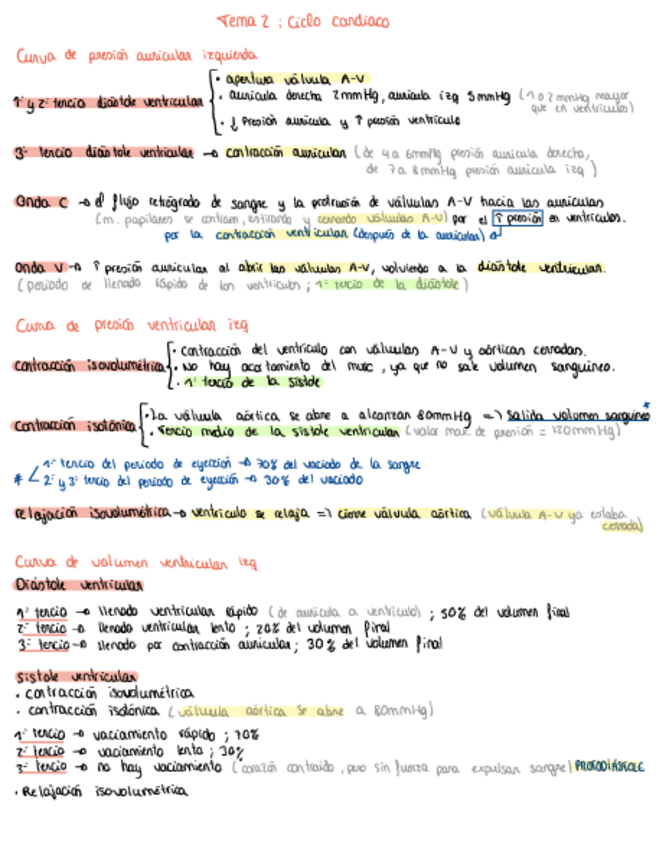 Tema 2 : Ciclo cardiaco
Curva de presión auricular izquierda
1º y 2º tercio diástole ventricular
· apertura válvula A-V
· aurícula derecha 2mmHg, aurícula izq 5mmHg (1 o 2 mmHg mayor que en ventrículos)
· ↓ Presión aurícula y ↑ presión ventrículo
3º tercio diástole ventricular → contracción auricular (de 4 a 6mmHg presión aurícula derecha,
de 7 a 8mmHg presión aurícula izq)
Onda C → el flujo retrógrado de sangre y la protrusión de válvulas A-V hacia las aurículas
(m. papilares se contraen, estirando y cerrando válvulas A-V) por el ↑ presión en ventrículos.
por la contracción ventricular (después de la auricular)
Onda V → ↑ presión auricular al abrir las válvulas A-V, volviendo a la diástole ventricular.
(periodo de llenado rápido de los ventrículos ; 1º tercio de la diástole)
Curva de presión ventricular izq
contracción isovolumétrica
· contracción del ventrículo con válvulas A-V y aórticas cerradas.
· No hay acortamiento del musc, ya que no sale volumen sanguíneo.
· 1º tercio de la sístole
contracción isotónica
· La válvula aórtica se abre a alcanzar 80mmHg => salida volumen sanguíneo *
· Tercio medio de la sístole ventricular (valor max. de presión = 120mmHg)
* 1º tercio del periodo de eyección → 70% del vaciado de la sangre
2º y 3º tercio del periodo de eyección → 30% del vaciado
relajación isovolumétrica → ventrículo se relaja => cierre válvula aórtica (válvula A-V ya estaba cerrada)
Curva de volumen ventricular izq
Diástole ventricular
1º tercio → llenado ventricular rápido (de aurícula a ventrículo) ; 50% del volumen final
2º tercio → llenado ventricular lento ; 20% del volumen final
3º tercio → llenado por contracción auricular ; 30% del volumen final
sístole ventricular
· contracción isovolumétrica
· contracción isotónica (válvula aórtica se abre a 80mmHg)
1º tercio → vaciamiento rápido ; 70%
2º tercio → vaciamiento lento ; 30%
3º tercio → no hay vaciamiento (corazón contraído, pero sin fuerza para expulsar sangre) PROTODIÁSTOLE
· Relajación isovolumétrica